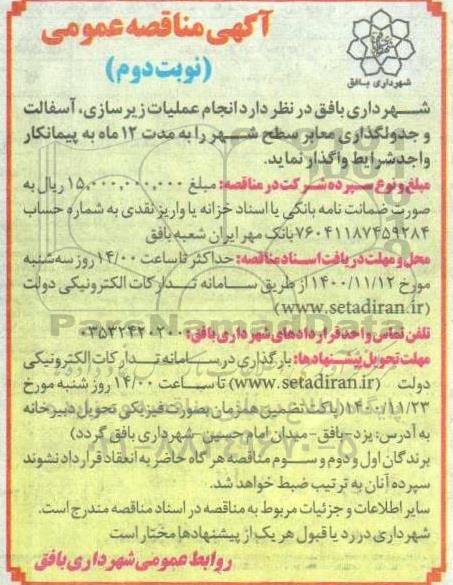 آگهی مناقصه عمومی
(نوبت دوم)
شهرداری بافق
شهرداری بافق در نظر دارد انجام عملیات زیرسازی، آسفالت
و جدولگذاری معابر سطح شهر را به مدت ۱۲ ماه به پیمانکار
واجد شرایط واگذار نماید.
مبلغ و نوع سپرده شرکت در مناقصه: مبلغ ۱۵,۰۰۰,۰۰۰,۰۰۰ ریال به
صورت ضمانت نامه بانکی یا اسناد خزانه یا واریز نقدی به شماره حساب
۷۶۰۴۱۱۸۷۴۵۹۲۸۴ بانک مهر ایران شعبه بافق
محل و مهلت دریافت اسناد مناقصه: حداکثر تا ساعت ۱۴/۰۰ روز سه‌شنبه
مورخ ۱۴۰۰/۱۱/۱۲ از طریق سامانه تدارکات الکترونیکی دولت
(www.setadiran.ir)
تلفن تماس واحد قراردادهای شهرداری بافق: ۰۳۵۳۲۴۲۰۲۰۰
مهلت تحویل پیشنهادها: بارگذاری در سامانه تدارکات الکترونیکی
دولت (www.setadiran.ir) تا ساعت ۱۴/۰۰ روز شنبه مورخ
۱۴۰۰/۱۱/۲۳ (پاکت تضمین همزمان بصورت فیزیکی تحویل دبیرخانه
به آدرس: یزد-بافق-میدان امام حسین-شهرداری بافق گردد)
برندگان اول و دوم و سوم مناقصه هرگاه حاضر به انعقاد قرارداد نشوند
سپرده آنان به ترتیب ضبط خواهد شد.
سایر اطلاعات و جزئیات مربوط به مناقصه در اسناد مناقصه مندرج است.
شهرداری در رد یا قبول هر یک از پیشنهادها مختار است
روابط عمومی شهرداری بافق